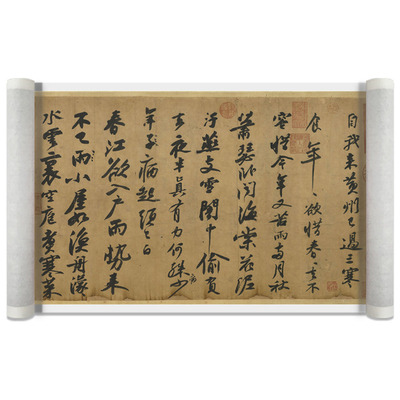 自我來黃州已過三寒
食年〻欲惜春〻去不
容惜今年又苦雨兩月秋
蕭瑟卧聞海棠花泥
汙燕支雪闇中偷負
去夜半真有力何殊病少
年子病起頭已白
春江欲入戶雨勢來
不已雨小屋如漁舟濛〻
水雲裏空庖煮寒菜